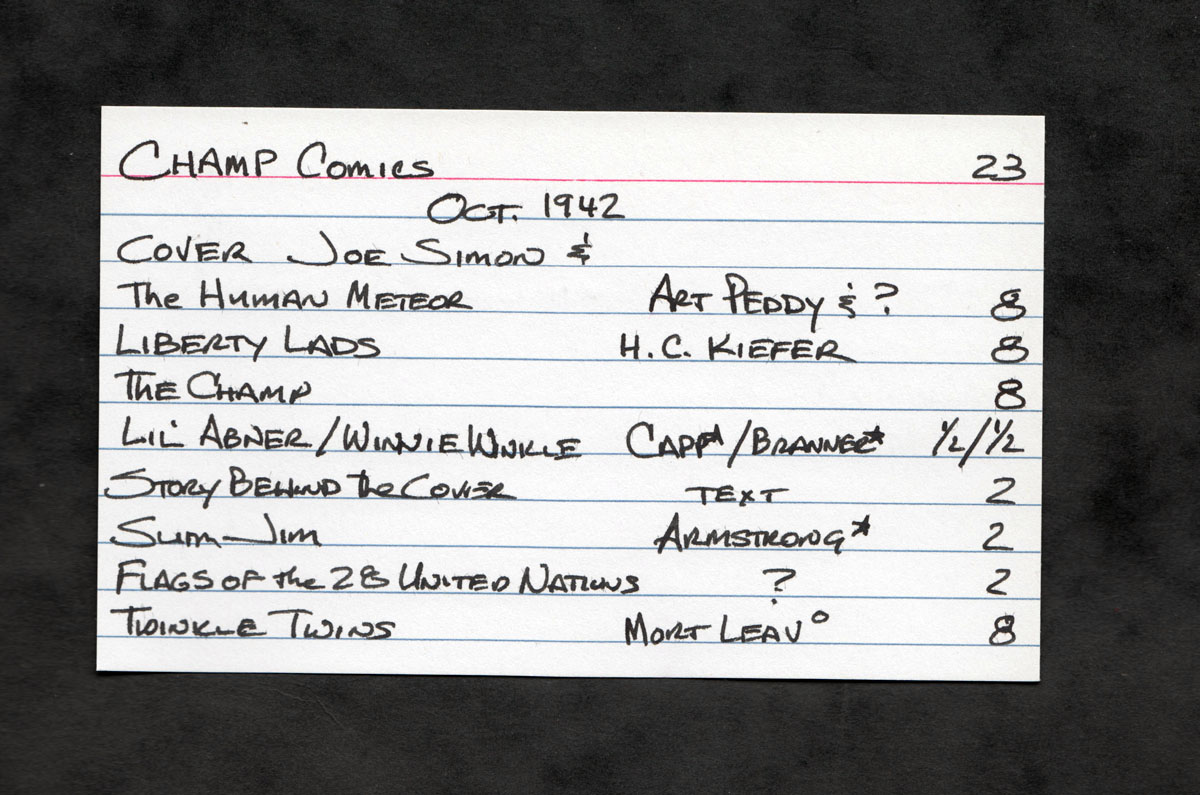 CHAMP COMICS 23
OCT. 1942
COVER JOE SIMON &
The HUMAN METEOR ART PEDDY & ? 8
LIBERTY LADS H.C. KIEFER 8
THE CHAMP 8
LIL' ABNER/WINNIE WINKLE CAPP*/BRANNER* ½/½
STORY BEHIND the COVER TEXT 2
SLIM-JIM ARMSTRONG* 2
FLAGS OF the 28 UNITED NATIONS ? 2
TWINKLE TWINS MORT LEAV° 8